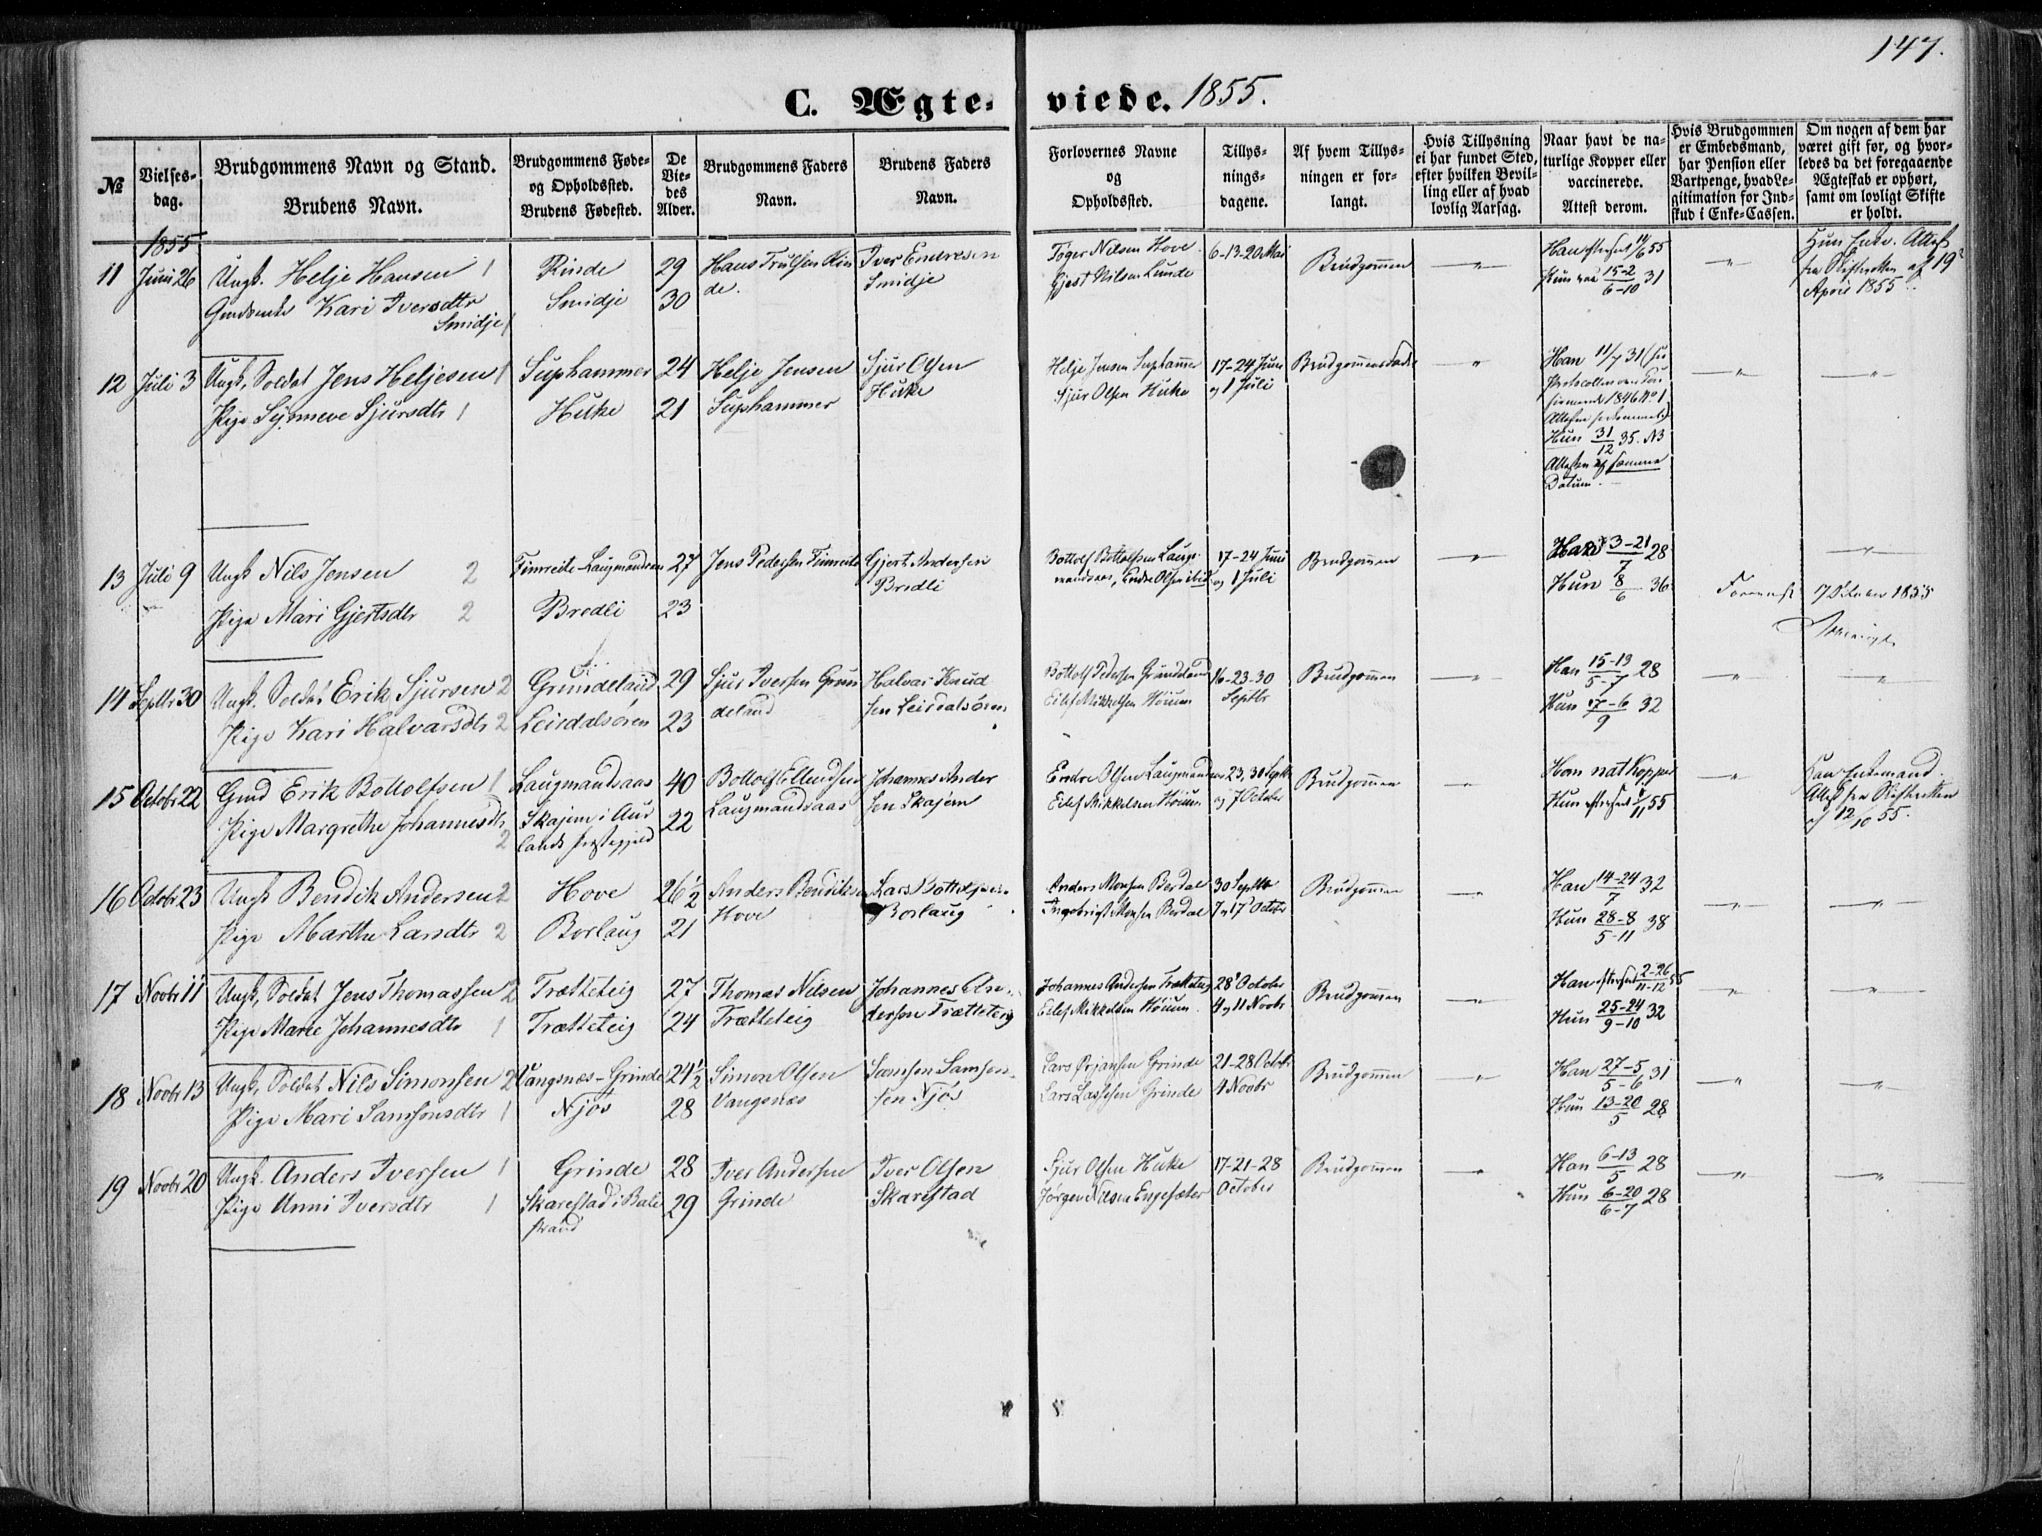 147.
C. Ægte- viede. 1855.
№
Vielses-
dag.
Brudgommens Navn og Stand.
Brudens Navn.
Brudgommens Føde-
og Opholdssted.
Brudens Fødested.
De
Vie-
des
Alder.
Brudgommens Faders
Navn.
Brudens Faders
Navn.
Forlovernes Navne
og
Opholdssted.
Tillys-
nings-
dagene.
Af hvem Tillys-
ningen er for-
langt.
Hvis Tillysning
ei har fundet Sted,
efter hvilken Bevil-
ling eller af hvad
lovlig Aarsag.
Naar havt de na-
turlige Kopper eller
vaccinerede.
Attest derom.
Hvis Brudgommen
er Embedsmand,
har Pension eller
Vartpenge, hvad Le-
gitimation for Ind-
skud i Enke-Cassen.
Om nogen af dem har
været gift før, og hvor-
ledes da det foregaaende
Ægteskab er ophørt,
samt om lovligt Skifte
er holdt.
1855
11 Juni 26 Ungk. Helje Hansen 1 Rinde 29 Hans Trulsen Rin Iver Endresen Tøger Nilsen Hove 6-13-20 Mai Brudgommen — " — Han 11/6 55 — " — Hun Enke. Attest
Kari Iversdtr Smidje 30 de. Smidje Gjert Nilsen Lunde Hun 15-2/6-10 31 fra Skifteretten af 19
Smidje 1 April 1855
12 Juli 3 Ungk. Soldat Jens Heljesen 1 Suphammer 24 Helje Jensen Sjur Olsen Helje Jensen Suphammer 17-24 Juni — " — Han 11/7 31 — " — — " —
Pige Synneve Sjursdtr 1 Huke 21 Suphammer Huke Sjur Olsen Huke og 1 Juli
1846 No 1
Hun 31/12 35. N3
Attesten af samme
Datum. —
13 Juli 9 Ungk Nils Jensen 2 Fimreite-Laugmandsaas 27 Jens Pedersen Fimreite Gjert Andersen Bottolf Bottolfsen Laug- 17-24 Juni Brudgommen — " — Han 3-21/7 28 — " —
Pige Mari Gjertsdtr 2 Brødli 23 Brødli mandsaas, Endre Olsen ibid og 1 Juli Hun 8/6 36 7 October 1855
14 Septbr 30 Ungk. Soldat Erik Sjursen 2 Grundeland 29 Sjur Iversen Grun Halvar Knud Bottolf Pedersen Grundeland 16-23-30 Brudgommen — " — Han 15-13/5-7 28 — " — — " —
Pige Kari Halvarsdtr 2 Leirdalsøren 23 deland sen Leirdalsøren Eilef Mikkelsen Høium Septbr Hun 17-6/9 32
15 Octobr 22 Gmd Erik Bottolfsen 1 Laugmandsaas 40 Bottolf Ellendsen Johannes Ander Endre Olsen Laugmandsaas 23, 30 Septbr Brudgommen — " — Han nat Kopper — " — Han Enkemand.
Pige Margrethe Johannesdtr 2 Skajem i Aur 22 Laugmandsaas sen Skajem Eilef Mikkelsen Høium og 7 October Hun 55 Attest fra Skifteretten
lands Præstegjeld af 12/10 55.
16 Octobr 23 Ungk Bendik Andersen 2 Hove 26½ Anders Bendiksen Lars Bottolfsen Anders Monsen Berdal 30 Septbr Brudgommen — " — Han 14-24/7 32 — " — — " —
Pige Marthe Larsdtr 2 Borlaug 21 Hove Borlaug Ingebrigt Monsen Berdal 7 og 17 Octobr Hun 28-8/5-11 38
17 Novbr 11 Ungk, Soldat Jens Thomassen 2 Trætteteig 27 Thomas Nilsen Johannes An- Johannes Andersen Trætteteig 28 October Brudgommen — " — Han 2-26/11-12 55 — " — — " —
Pige Marte Johannesdtr 1 Trætteteig 24 Trætteteig dersen Trætteteig Eilef Mikkelsen Høium 4 og 11 Novbr Hun 25-24/9-10 32
18 Novbr 13 Ungk, Soldat Nils Simonsen 2 Vangsnæs-Grinde 24½ Simon Olsen Samson Samson- Lars Ørjansen Grinde 21-28 Octobr Brudgommen — " — Han 27-5/5-6 31 — " — — " —
Pige Mari Samsonsdtr 1 Njøs 28 Vangsnæs sen Njøs Lars Lassesen Grinde 4 Novbr Hun 13-20/5 28
19 Novbr 20 Ungk. Anders Iversen 1 Grinde 28 Iver Andersen Iver Olsen Sjur Olsen Huke 17-21-28 Brudgommen — " — Han 6-13/5 28 — " — — " —
Pige Anni Iversdtr 1 Skarestad i Bale 29 Grinde Skarestad Jørgen Nilsen Engesæter October Hun 6-20/6-7 28
strand